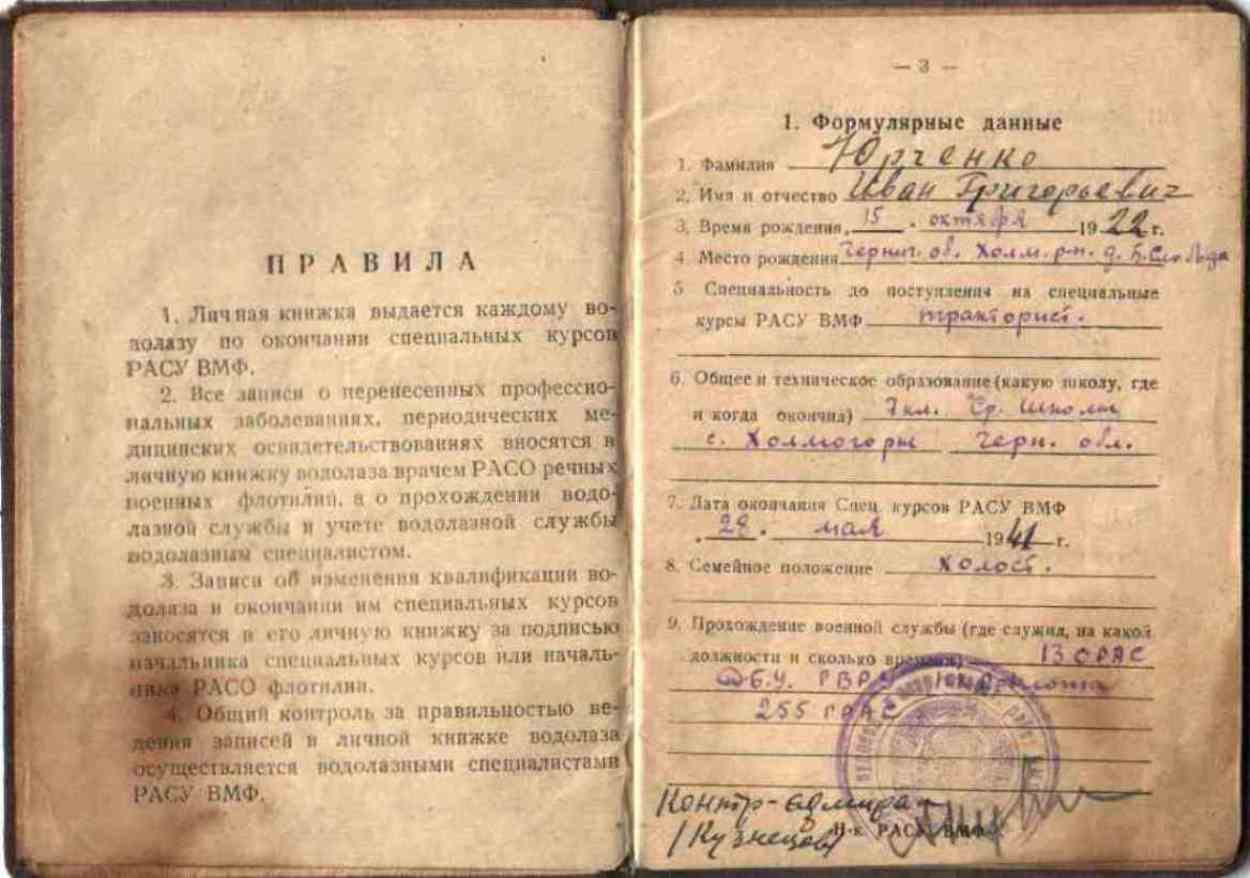 ПРАВИЛА
1. Личная книжка выдается каждому во-
долазу по окончании специальных курсов
РАСУ ВМФ.
2. Все записи о перенесенных профессио-
нальных заболеваниях, периодических ме-
дицинских освидетельствованиях вносятся в
личную книжку водолаза врачем РАСО речных
военных флотилий, а о прохождении водо-
лазной службы и учете водолазной службы
водолазным специалистом.
3. Записи об изменения квалификации во-
долаза и окончании им специальных курсов
заносятся в его личную книжку за подписью
начальника специальных курсов или началь-
ника РАСО флотилии.
4. Общий контроль за правильностью ве-
дения записей в личной книжке водолаза
осуществляется водолазными специалистами
РАСУ ВМФ.
— 3 —
1. Формулярные данные
1. Фамилия Юрченко
2. Имя и отчество Иван Григорьевич
3. Время рождения „15" октября 1922 г.
4. Место рождения Черниг. об. Холм. р-н. д.
5 Специальность до поступления на специальные
курсы РАСУ ВМФ тракторист.
6. Общее и техническое образование (какую школу, где
и когда окончил) 7 кл. Ср. Школы
с. Холмогоры Черн. обл.
7. Дата окончания Спец. курсов РАСУ ВМФ
„28" мая 1941 г.
8. Семейное положение холост.
9. Прохождение военной службы (где служил, на какой
должности и сколько времени) 13 ОРАС
255
Контр-адмирал
/Кузнецов/ Н-к РАСУ ВМФ